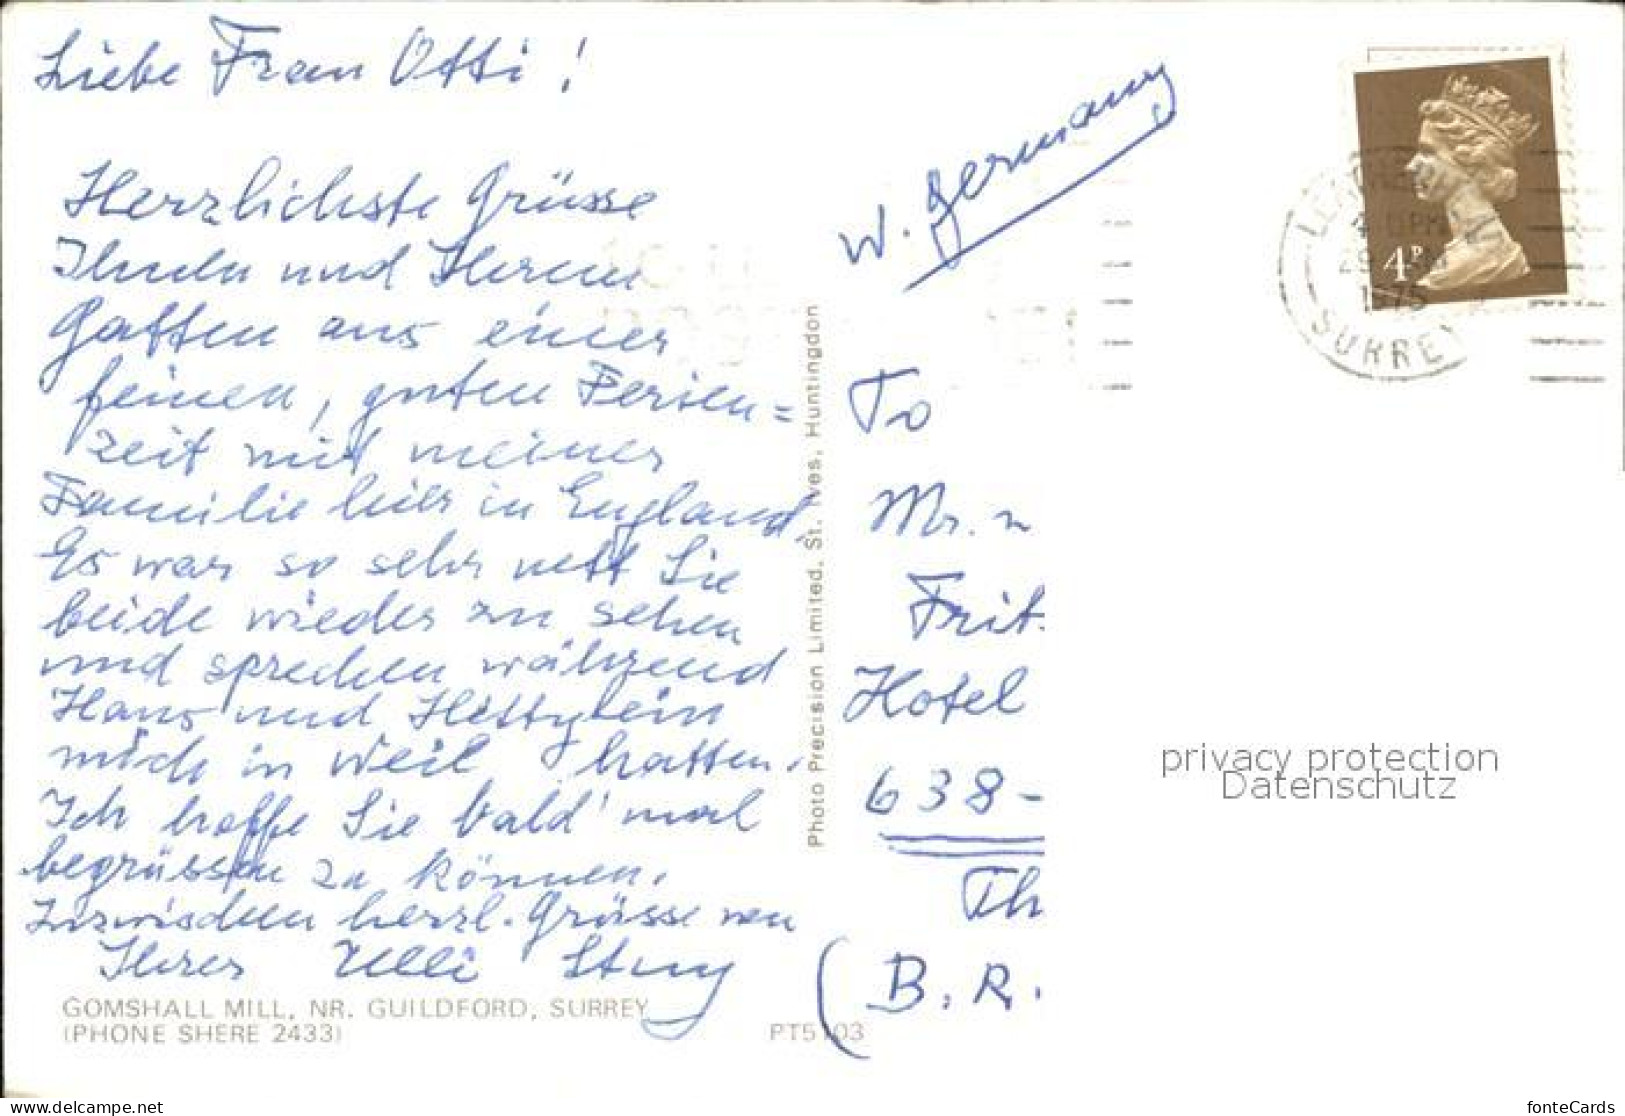 Liebe Frau Otti!
Herzlichste Grüsse
Ihnen und Ihrem
Gatten aus einer
feinen, guten Ferien=
zeit mit meiner
Familie hier in England,
Es war so sehr nett Sie
beide wieder zu sehen
und sprechen während
Hans und Hettylein
mich in Weil hatten.
Ich hoffe Sie bald 'mal
begrüssen zu können.
Inzwischen herzl. Grüsse von
Ihrer Ulli
GOMSHALL MILL, NR. GUILDFORD, SURREY
(PHONE SHERE 2433)
PT5103
Photo Precision Limited, St. Ives, Huntingdon
W. Germany
To
Mr.
Frit
Hotel
638-
Th
(B.R.
4P
SURREY
privacy protection
Datenschutz
https://www.delcampe.net
fonteCards